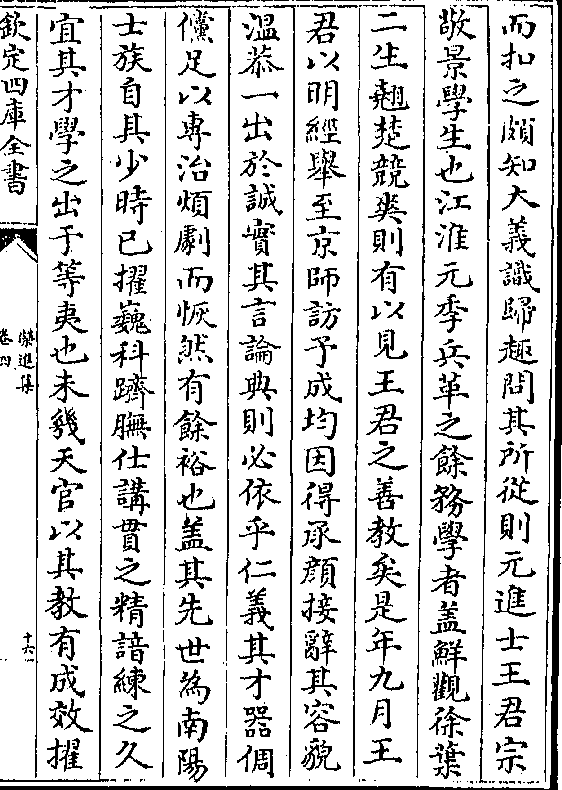 而扣之頗知大義識歸趣問其所從則元進士王君宗
敬景學生也江淮元季兵革之餘務學者蓋鮮觀徐葉
二生翹楚競爽則有以見王君之善教矣是年九月王
君以明經舉至京師訪予成均因得承顔接辭其容貌
溫恭一出於誠實其言論典則必依乎仁義其才器倜
儻足以專治煩劇而恢然有餘裕也蓋其先世為南陽
士族自其少時已擢巍科躋膴仕講貫之精諳練之久
宜其才學之出于等夷也未幾天官以其教有成效擢
欽定四庫全書
卷四
十六